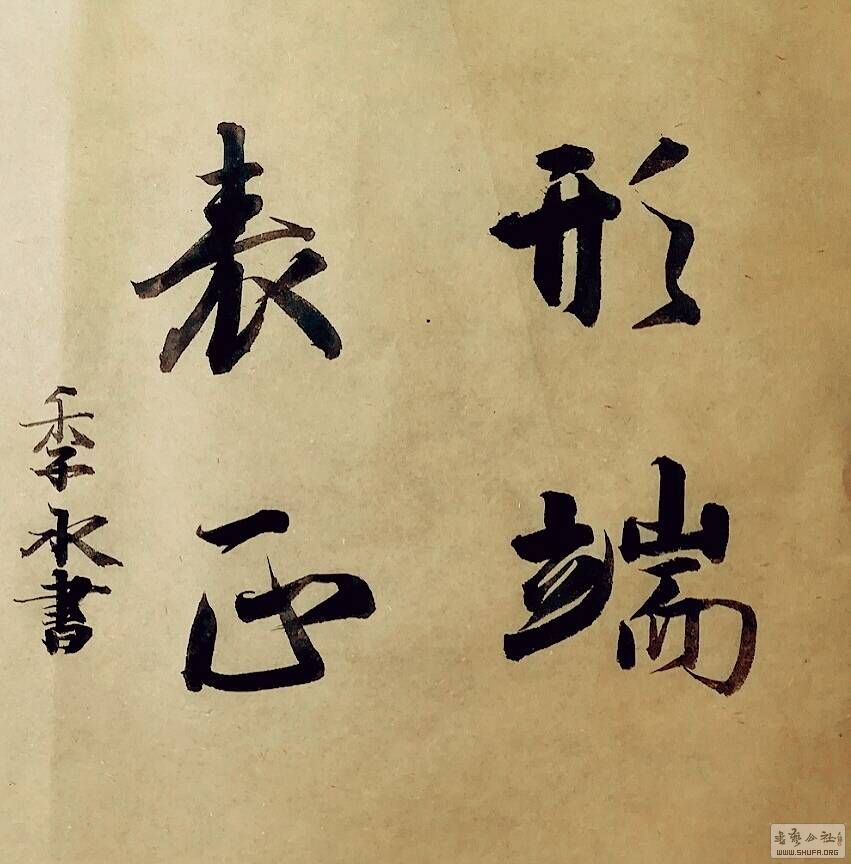 形端
表正
季永書
書藝公社
WWW.SHUFA.ORG